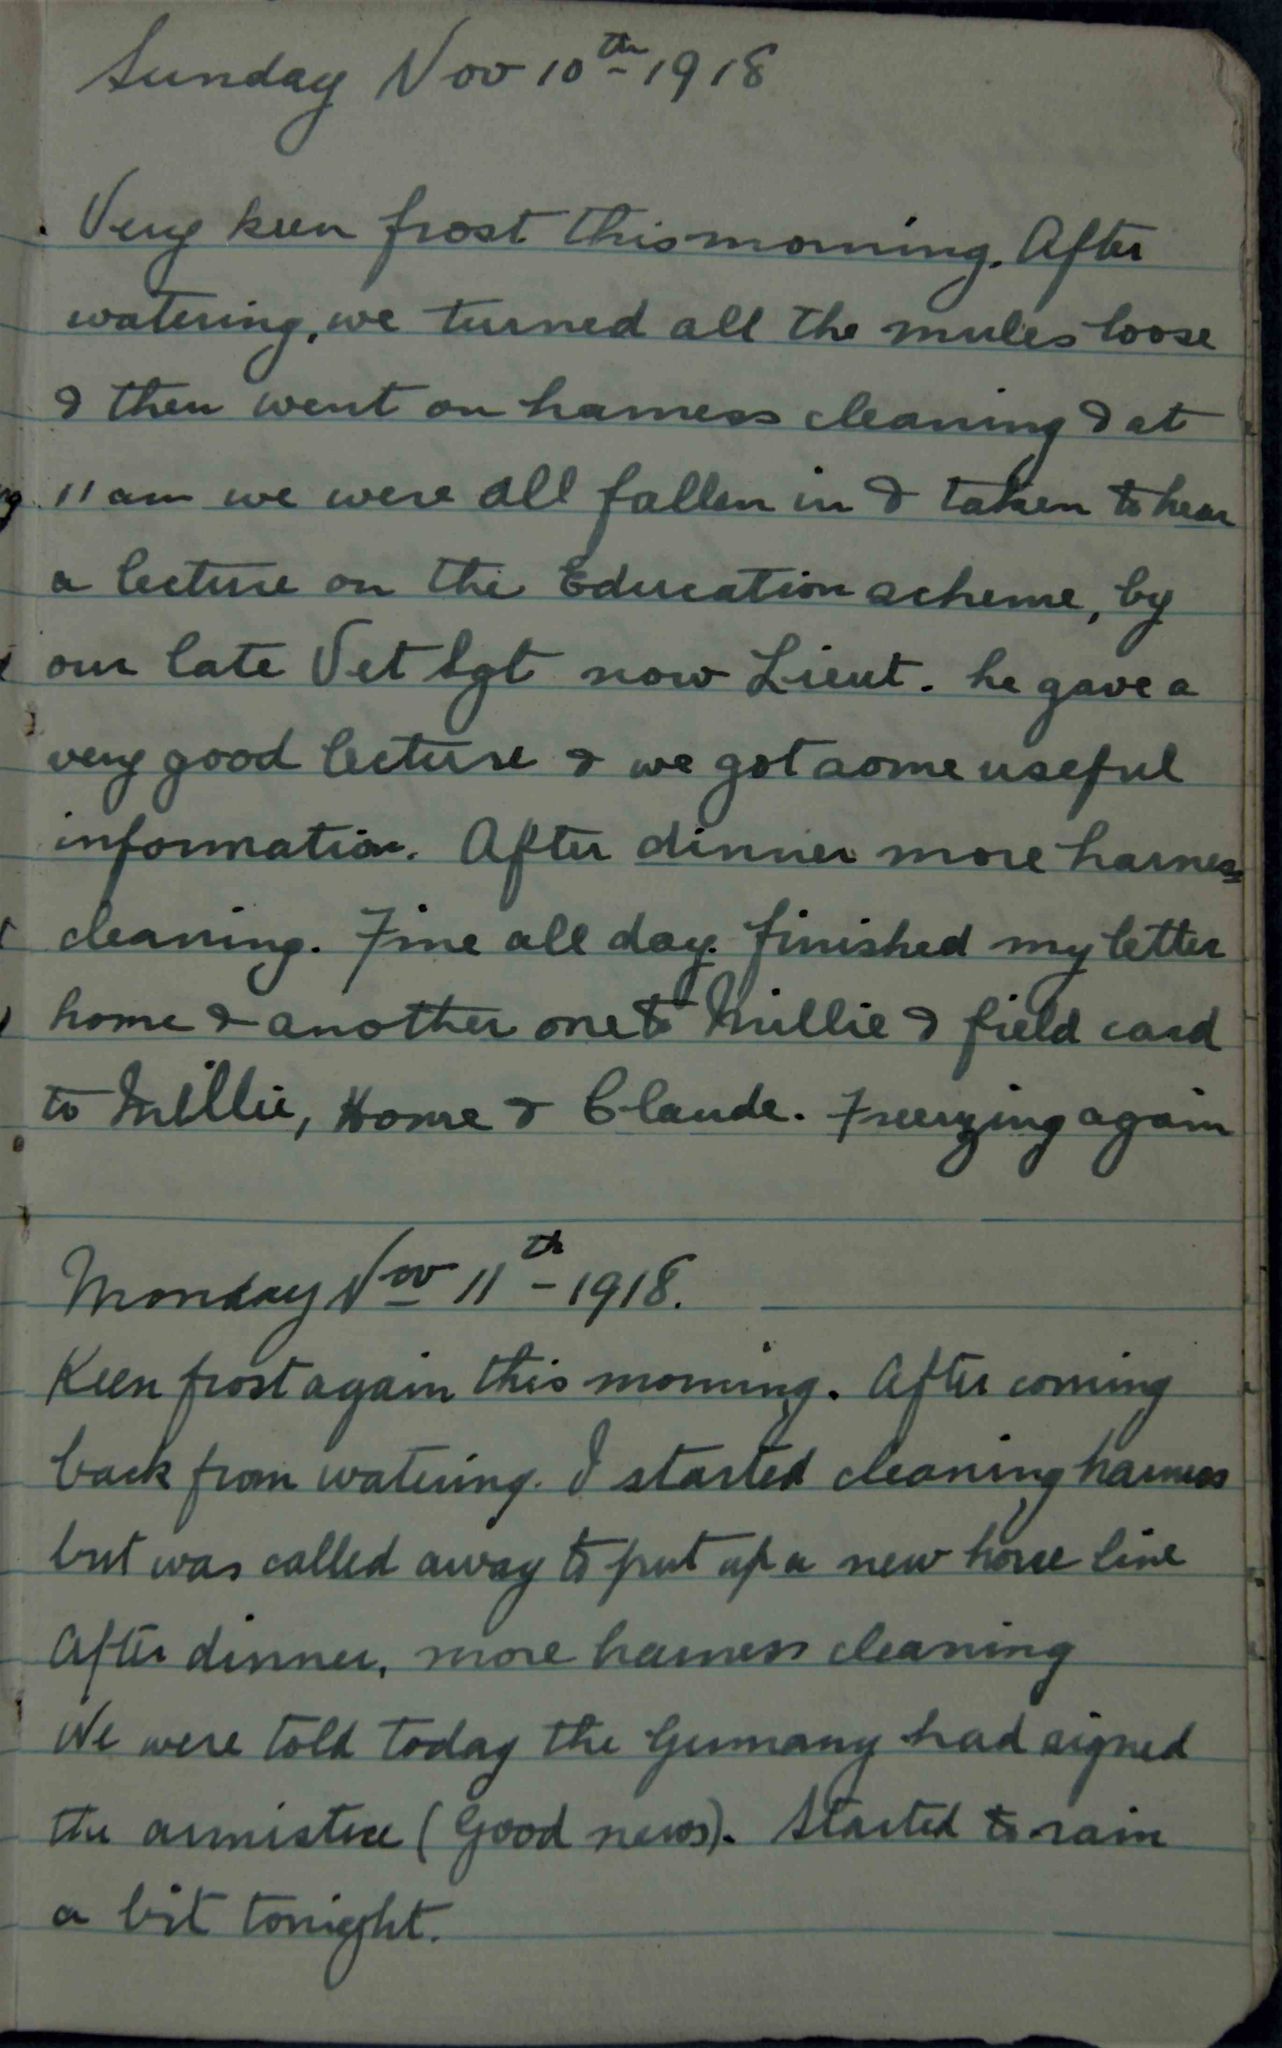 Sunday Nov 10th - 1918
Very keen frost this morning. After
watering, we turned all the mules loose
& then went on harness cleaning & at
11 am we were all fallen in & taken to hear
a lecture on the Education scheme, by
our late Vet Sgt now Lieut. he gave a
very good lecture & we got some useful
information. After dinner more harness
cleaning. Fine all day. finished my letter
home & another one to Millie & field card
to Millie, Home & Claude. Freezing again
Monday Nov 11th - 1918.
Keen frost again this morning. After coming
back from watering. I started cleaning harness
but was called away to put up a new horse line
After dinner, more harness cleaning
We were told today the Germany had signed
the armistice (Good news). Started to rain
a bit tonight.